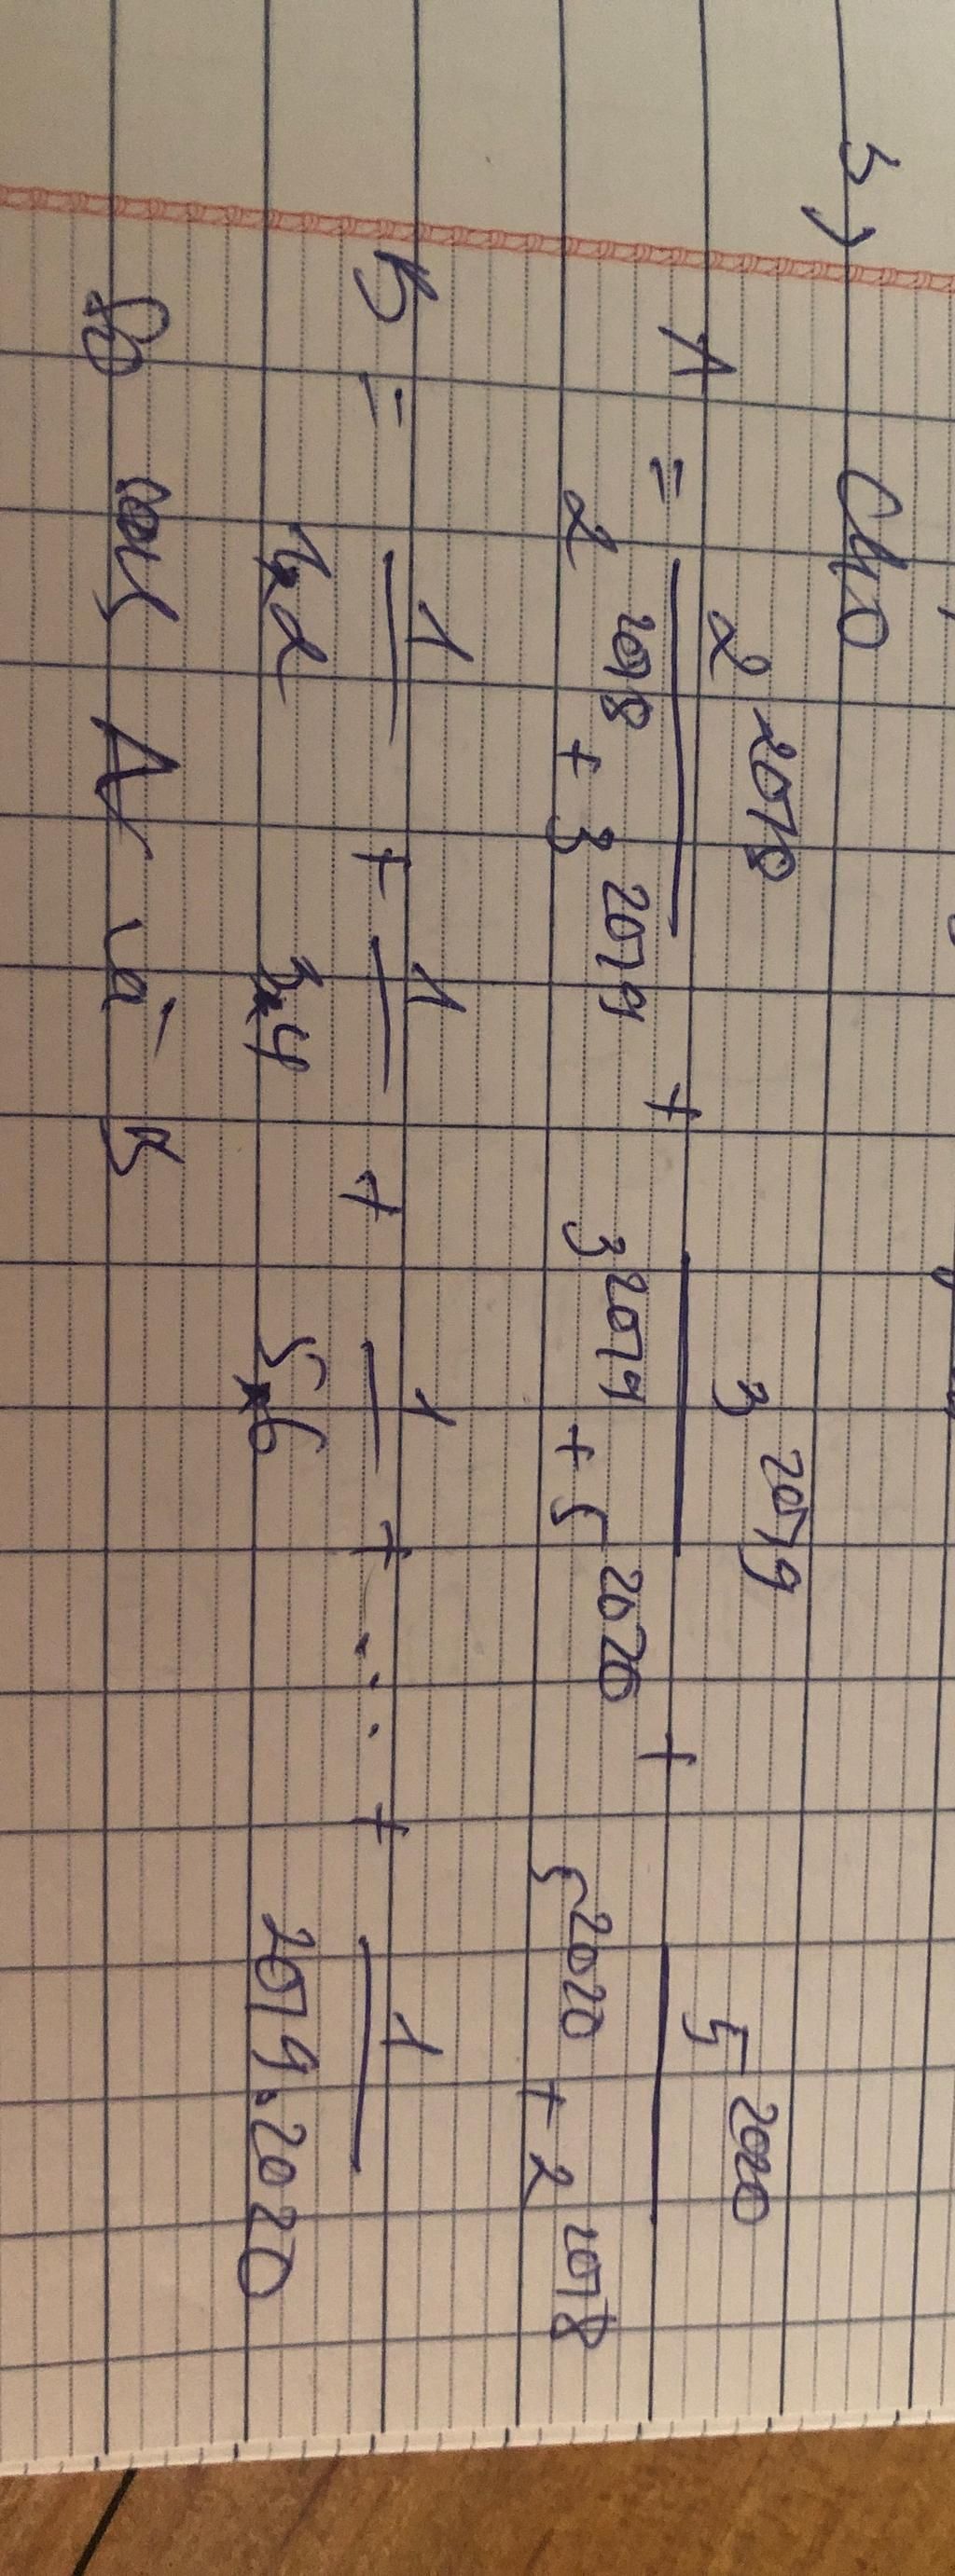 b) Cho
A = 2^2018 / (2^2018 + 3^2019) + 3^2019 / (3^2019 + 5^2020) + 5^2020 / (5^2020 + 2^2018)
B = 1/1.2 + 1/3.4 + 1/5.6 + ... + 1/2019.2020
So sánh A và B